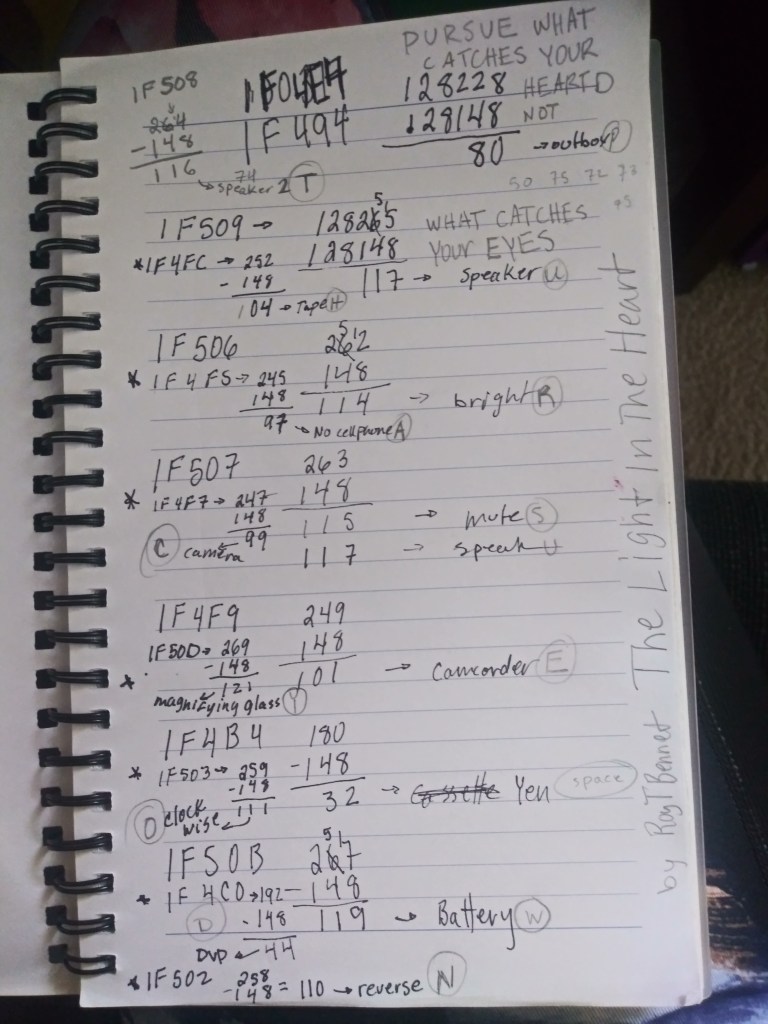 PURSUE WHAT
CATCHES YOUR
HEART
NOT
WHAT CATCHES
YOUR EYES
1F508
264
-148
116
→ speaker 2 T
74
1F494
128228
128148
80 → outbox P
50 75 72 73
95
1F509 → 128265
51
128148
117 → Speaker U
*1F4FC → 252
-148
104 → Tape H
1F506 262
51
148
114 → bright R
* 1F4F5 → 245
148
97 → No cellphone A
1F507 263
148
115 → mute S
* 1F4F7 → 247
148
99
C camera
117 → Speak U
1F4F9 249
148
101 → Camcorder E
1F50D → 269
-148
* 121
magnifying glass Y
1F4B4 180
-148
32 → Cassette Yen space
* 1F503 → 259
-148
111
O clock
wise
1F50B 267
51
-148
119 → Battery W
* 1F4C0 → 192
-148
44
D
DVD
*1F502 258
-148 = 110 → reverse N
by Roy T Bennet The Light In The Heart